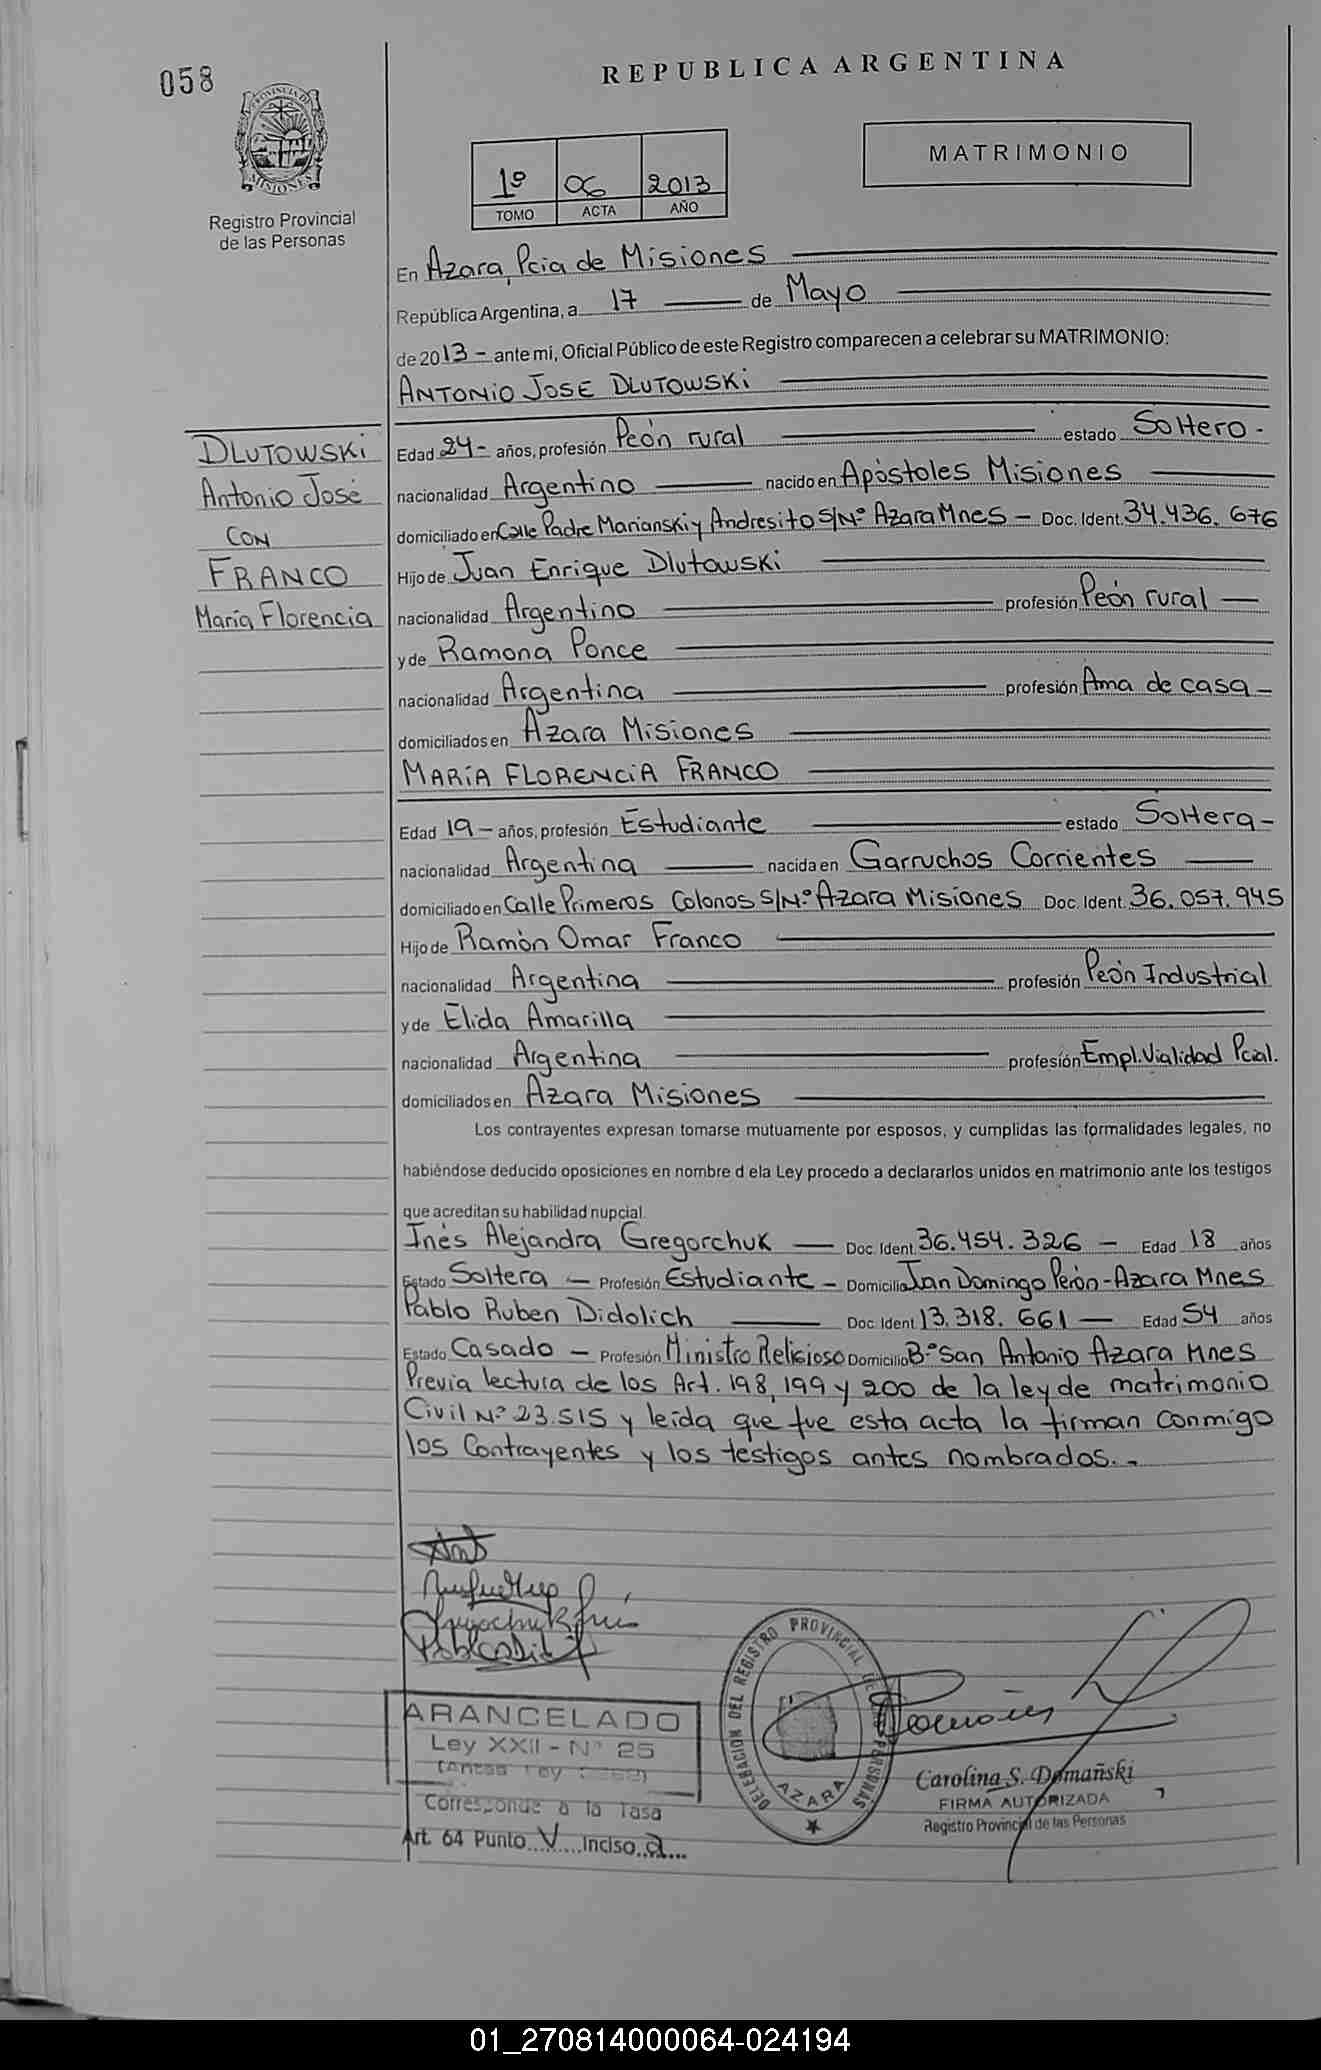 058
REPUBLICA ARGENTINA
PROVINCIA DE
MISIONES
Registro Provincial
de las Personas
MATRIMONIO
1º 06 2013
TOMO ACTA AÑO
En Azara, Pcia de Misiones
República Argentina, a 17 de Mayo
de 2013 - ante mi, Oficial Público de este Registro comparecen a celebrar su MATRIMONIO:
ANTONIO JOSE DLUTOWSKI
DLUTOWSKI
Antonio José
CON
FRANCO
María Florencia
Edad 24 - años, profesión Peón rural estado Soltero -
nacionalidad Argentino nacido en Apóstoles Misiones
domiciliado en Calle Padre Marianski y Andresito S/Nº Azara Mnes - Doc. Ident. 34.436.676
Hijo de Juan Enrique Dlutowski
nacionalidad Argentino profesión Peón rural
y de Ramona Ponce
nacionalidad Argentina profesión Ama de casa -
domiciliados en Azara Misiones
MARÍA FLORENCIA FRANCO
Edad 19 - años, profesión Estudiante estado Soltera -
nacionalidad Argentina nacida en Garruchos Corrientes
domiciliado en Calle Primeros Colonos S/Nº Azara Misiones Doc. Ident. 36.057.945
Hijo de Ramón Omar Franco
nacionalidad Argentina profesión Peón Industrial
y de Elida Amarilla
nacionalidad Argentina profesión Empl. Vialidad Pcial.
domiciliados en Azara Misiones
Los contrayentes expresan tomarse mutuamente por esposos, y cumplidas las formalidades legales, no
habiéndose deducido oposiciones en nombre d ela Ley procedo a declararlos unidos en matrimonio ante los testigos
que acreditan su habilidad nupcial.
Inés Alejandra Gregorchuk - Doc. Ident. 36.454.326 - Edad 18 años
Estado Soltera - Profesión Estudiante - Domicilio Jan Domingo Perón - Azara Mnes
Pablo Ruben Didolich Doc. Ident. 13.318.661 - Edad 54 años
Estado Casado - Profesión Ministro Religioso Domicilio Bº San Antonio Azara Mnes
Previa lectura de los Art. 198, 199 y 200 de la ley de matrimonio
Civil Nº 23.515 y leída que fue esta acta la firman conmigo
los Contrayentes y los testigos antes nombrados. -
DELEGACION DEL REGISTRO PROVINCIAL DE LAS PERSONAS
AZARA
ARANCELADO
Ley XXII - Nº 25
Corresponde a la Tasa
Art. 64 Punto V Inciso a
Carolina S. Domañski
FIRMA AUTORIZADA
Registro Provincial de las Personas
01_270814000064-024194